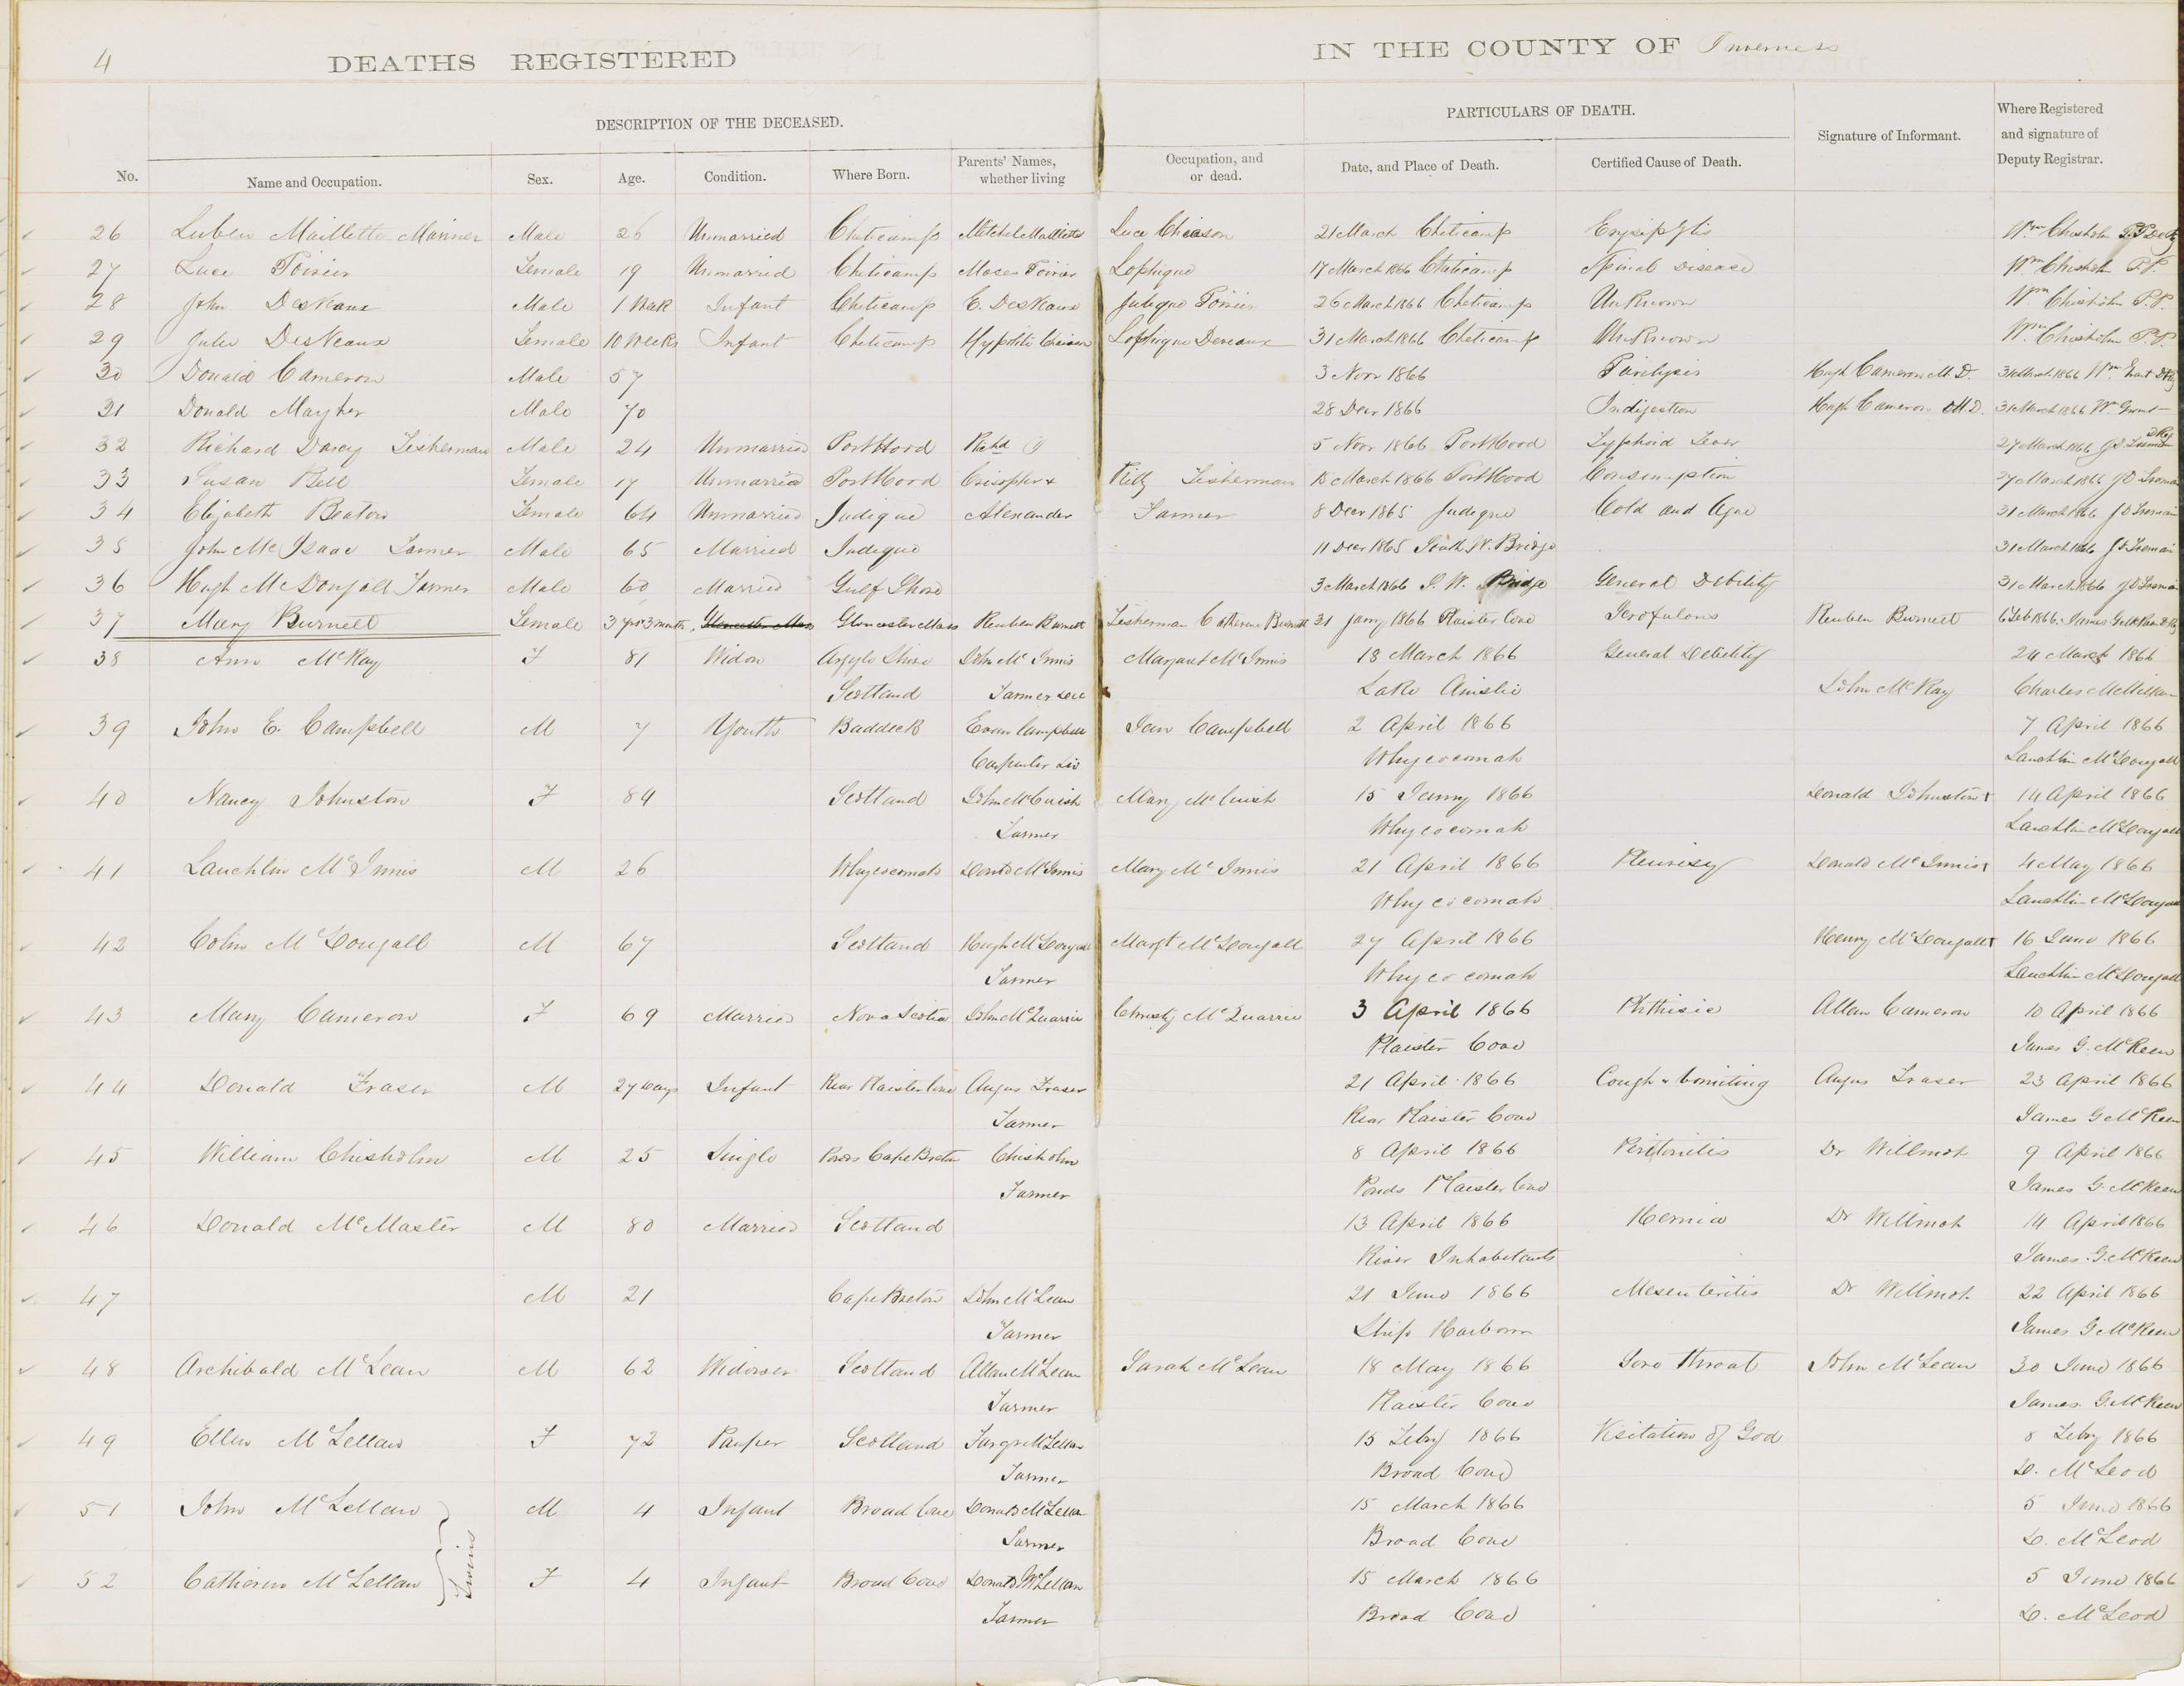 4
DEATHS REGISTERED IN THE COUNTY OF Inverness
DESCRIPTION OF THE DECEASED. PARTICULARS OF DEATH. Signature of Informant. Where Registered and signature of Deputy Registrar.
No. Name and Occupation. Sex. Age. Condition. Where Born. Parents' Names, whether living Occupation, and or dead. Date, and Place of Death. Certified Cause of Death.
26 Luben Maillette Mariner Male 26 Unmarried Cheticamp Mitchel Maillette Luce Chiason 21 March Cheticamp Wm Chisholm
27 Luce Poirier Female 19 Unmarried Cheticamp Moses Poirier Lophique 17 March 1866 Cheticamp Spinal Disease Wm Chisholm P.P.
28 John DesVeaux Male 1 Week Infant Cheticamp E. DesVeaux Poirier 26 March 1866 Cheticamp UnKnown Wm Chisholm P.P.
29 DesVeaux Female 10 Weeks Infant Cheticamp Hypolite Chiason Lophique Deveaux 31 March 1866 Cheticamp UnKnown Wm Chisholm P.P.
30 Donald Cameron Male 57 3 Novr 1866 Parilysis Hugh Cameron M.D. 31 March 1866 Wm Grant
31 Donald Mayher Male 70 28 Decr 1866 Indigestion Hugh Cameron M.D. 31 March 1866 Wm Grant
32 Richard Darcy Fisherman Male 24 Unmarried Port Hood Richd 5 Novr 1866 Port Hood Typhoid Fever 27 March 1866
33 Susan Bell Female 17 Unmarried Port Hood Crisopher Kitty Fisherman 18 March 1866 Port Hood Consumption 27 March 1866
34 Elizabeth Beaton Female 64 Unmarried Judique Alexander Farmer 8 Decr 1865 Judique Cold and Ague 31 March 1866
35 John McIsaac Farmer Male 65 Married Judique 11 Decr 1865 South W. Bridge 31 March 1866
36 Hugh McDougall Farmer Male 60 Married Gulf Shore 3 March 1866 S. W. Bridge General Debility 31 March 1866
37 Mary Burnett Female 3 yrs 3 month Gloucester Mass Reuben Burnett Fisherman Catherine Burnett 31 Jany 1866 Plaister Cove Scrofulous Reuben Burnett 6 Feb 1866
38 Ann McKay F 81 Widow Argyle Shire John McInnis Margaret McInnis 18 March 1866 General Debility 24 March 1866
Scotland Farmer Dec Lake Ainslie John McKay Charles McMillan
39 John E. Campbell M 7 Youth Baddeck Evan Campbell Jean Campbell 2 April 1866 7 April 1866
Carpenter Liv Whycocomah Lauchlin McDougall
40 Nancy Johnston F 84 Scotland John McCuish Mary McCuish 15 Janry 1866 Donald Johnston + 14 April 1866
Farmer Whycocomah Lauchlin McDougall
41 Lauchlin McInnis M 26 Whycocomah Donld McInnis Mary McInnis 21 April 1866 Pleurisy Donald McInnis + 4 May 1866
Whycocomah Lauchlin McDougall
42 Colin McDougall M 67 Scotland Hugh McDougall Margt McDougall 27 April 1866 Henry McDougall + 16 June 1866
Farmer Whycocomah Lauchlin McDougall
43 Mary Cameron F 69 Married Nova Scotia John McQuarrie Christy McQuarrie 3 April 1866 Phthisic Allan Cameron 10 April 1866
Plaister Cove James G. McKeen
44 Donald Fraser M 27 days Infant Rear Plaister Cove Angus Fraser 21 April 1866 Cough & Vomiting Angus Fraser 23 April 1866
Farmer Rear Plaister Cove James G. McKeen
45 William Chisholm M 25 Single Ponds Cape Breton Chisholm 8 April 1866 Peritonitis Dr Willmot 9 April 1866
Farmer Ponds Plaister Cove James G. McKeen
46 Donald McMaster M 80 Married Scotland 13 April 1866 Hernia Dr Willmot 14 April 1866
River Inhabitants James G. McKeen
47 M 21 Cape Breton John McLean 21 June 1866 Mesenteritis Dr Willmot 22 April 1866
Farmer Ship Harbour James G McKeen
48 Archibald McLean M 62 Widower Scotland Allan McLean Sarah McLean 18 May 1866 Sore throat John McLean 30 June 1866
Farmer Plaister Cove James G. McKeen
49 Ellen McLellan F 72 Pauper Scotland McLellan 15 Feby 1866 Visitation of God 8 Feby 1866
Farmer Broad Cove D. McLeod
51 John McLellan M 4 Infant Broad Cove Donald McLellan 15 March 1866 5 June 1866
Farmer Broad Cove D. McLeod
Twins
52 Catherine McLellan F 4 Infant Broad Cove Donald McLellan 15 March 1866 5 June 1866
Farmer Broad Cove D. McLeod